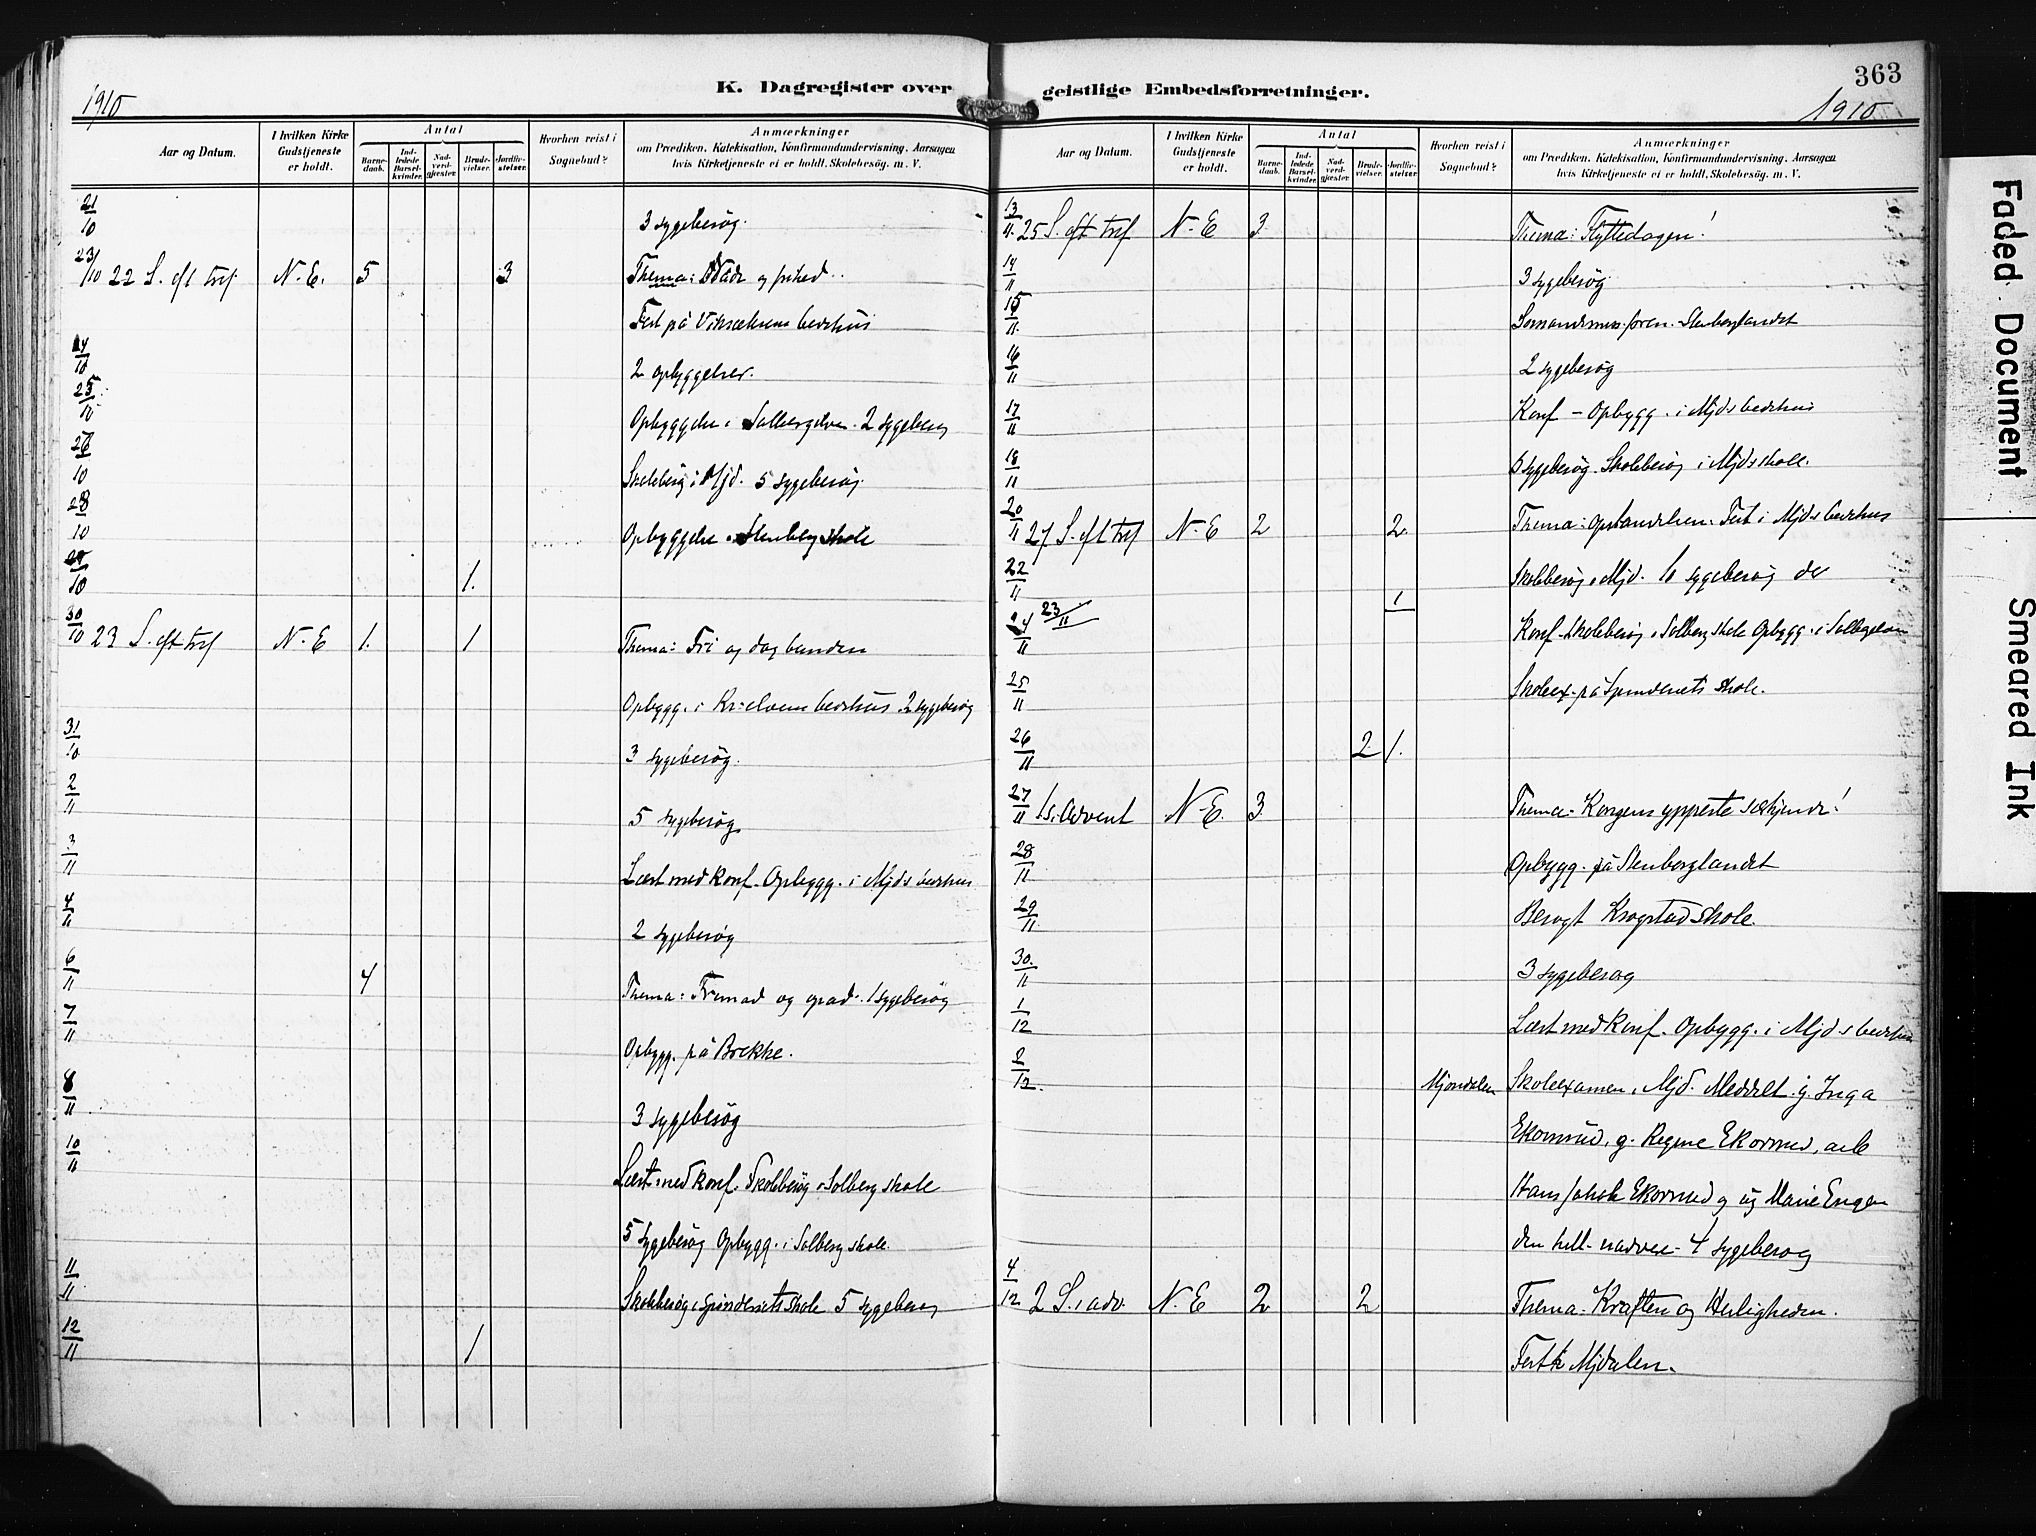 1910
K. Dagregister over
Aar og Datum.
I hvilken Kirke Gudstjeneste er holdt.
Antal
Barne-daab.
Ind-ledede Barsel-kvinder.
Nad-verd-gjæster.
Brude-vielser.
Jordfæ-stelser.
Hvorhen reist i Sognebud?
Anmærkninger
om Prædiken, Katekisation, Konfirmandundervisning, Aarsagen
hvis Kirketjeneste ei er holdt, Skolebesøg. m. V.
21/10 3 sygebesøg.
23/10 22 S. eft tref N. E. 5 3 Thema: Nåde og frihed
Fest på bedehus
24/10 2 opbyggelser.
25/10 Opbyggelse i Solbergelven. 2 sygebesøg
26/10 Skolebesøg i Mjd. 5 sygebesøg.
28/10 Opbyggelse i Stenberg skole
29/10 1.
30/10 23 S. eft. tref N. E 1. 1 Thema: Fri og dog bunden
Opbygg. i bedehus 2 sygebesøg
31/10 3 sygebesøg.
2/11 5 sygebesøg
3/11 Læst med konf. Opbygg. i Mjds bedehus
4/11 2 sygebesøg
6/11 4 Thema: Fremad og opad. 1 sygebesøg
7/11 Opbygg. på Brekke.
8/11 3 sygebesøg
10/11 Læst med konf. Skolebesøg i Solberg skole
5 sygebesøg Opbygg. i Solberg skole.
11/11 Skolebesøg i skole 5 sygebesøg
12/11 1
363
geistlige Embedsforretninger.
1910
Aar og Datum.
I hvilken Kirke Gudstjeneste er holdt.
Antal
Barne-daab.
Ind-ledede Barsel-kvinder.
Nad-verd-gjæster.
Brude-vielser.
Jordfæ-stelser.
Hvorhen reist i Sognebud?
Anmærkninger
om Prædiken, Katekisation, Konfirmandundervisning, Aarsagen
hvis Kirketjeneste ei er holdt, Skolebesøg. m. V.
13/11. 25 S. eft tref N. E 3. Thema: Flyttedagen!
14/11 3 sygebesøg
15/11. Stenberglandet
16/11 2 sygebesøg
17/11 Konf - Opbygg. i Mjds bedehus
18/11 sygebesøg. Skolebesøg i Mjds skole.
20/11 27 S. eft tref N. E 2 2. Thema: opstandelsen. Fest i Mjds bedehus
22/11 Skolebesøg i Mjd. sygebesøg der
23/11 1
24/11 Konf. Skolebesøg i Solberg skole Opbygg. i Solbergelven
25/11 Skoleex. på skole.
26/11 2. 1.
27/11 1 S. i Advent N. E. 3. Thema: Kongens ypperste
28/11 Opbygg. på Stenberglandet
29/11. Besøgt Krogstad skole.
30./11 3 sygebesøg
1/12 Læst med konf. Opbygg. i Mjds bedehus
2/12. Mjøndalen Skoleexamen i Mjd. Meddelt g. Inga
Ekornrud, g. Regine Ekornrud, arb
Hans Jakob Ekornrud og ug Marie Engen
den hell. nadver. 4 sygebesøg
4/12 2 S. i adv. N. E 2 2 Thema: Kraften og Herligheden.
Fest i Mjdalen.
Faded Document
Smeared Ink